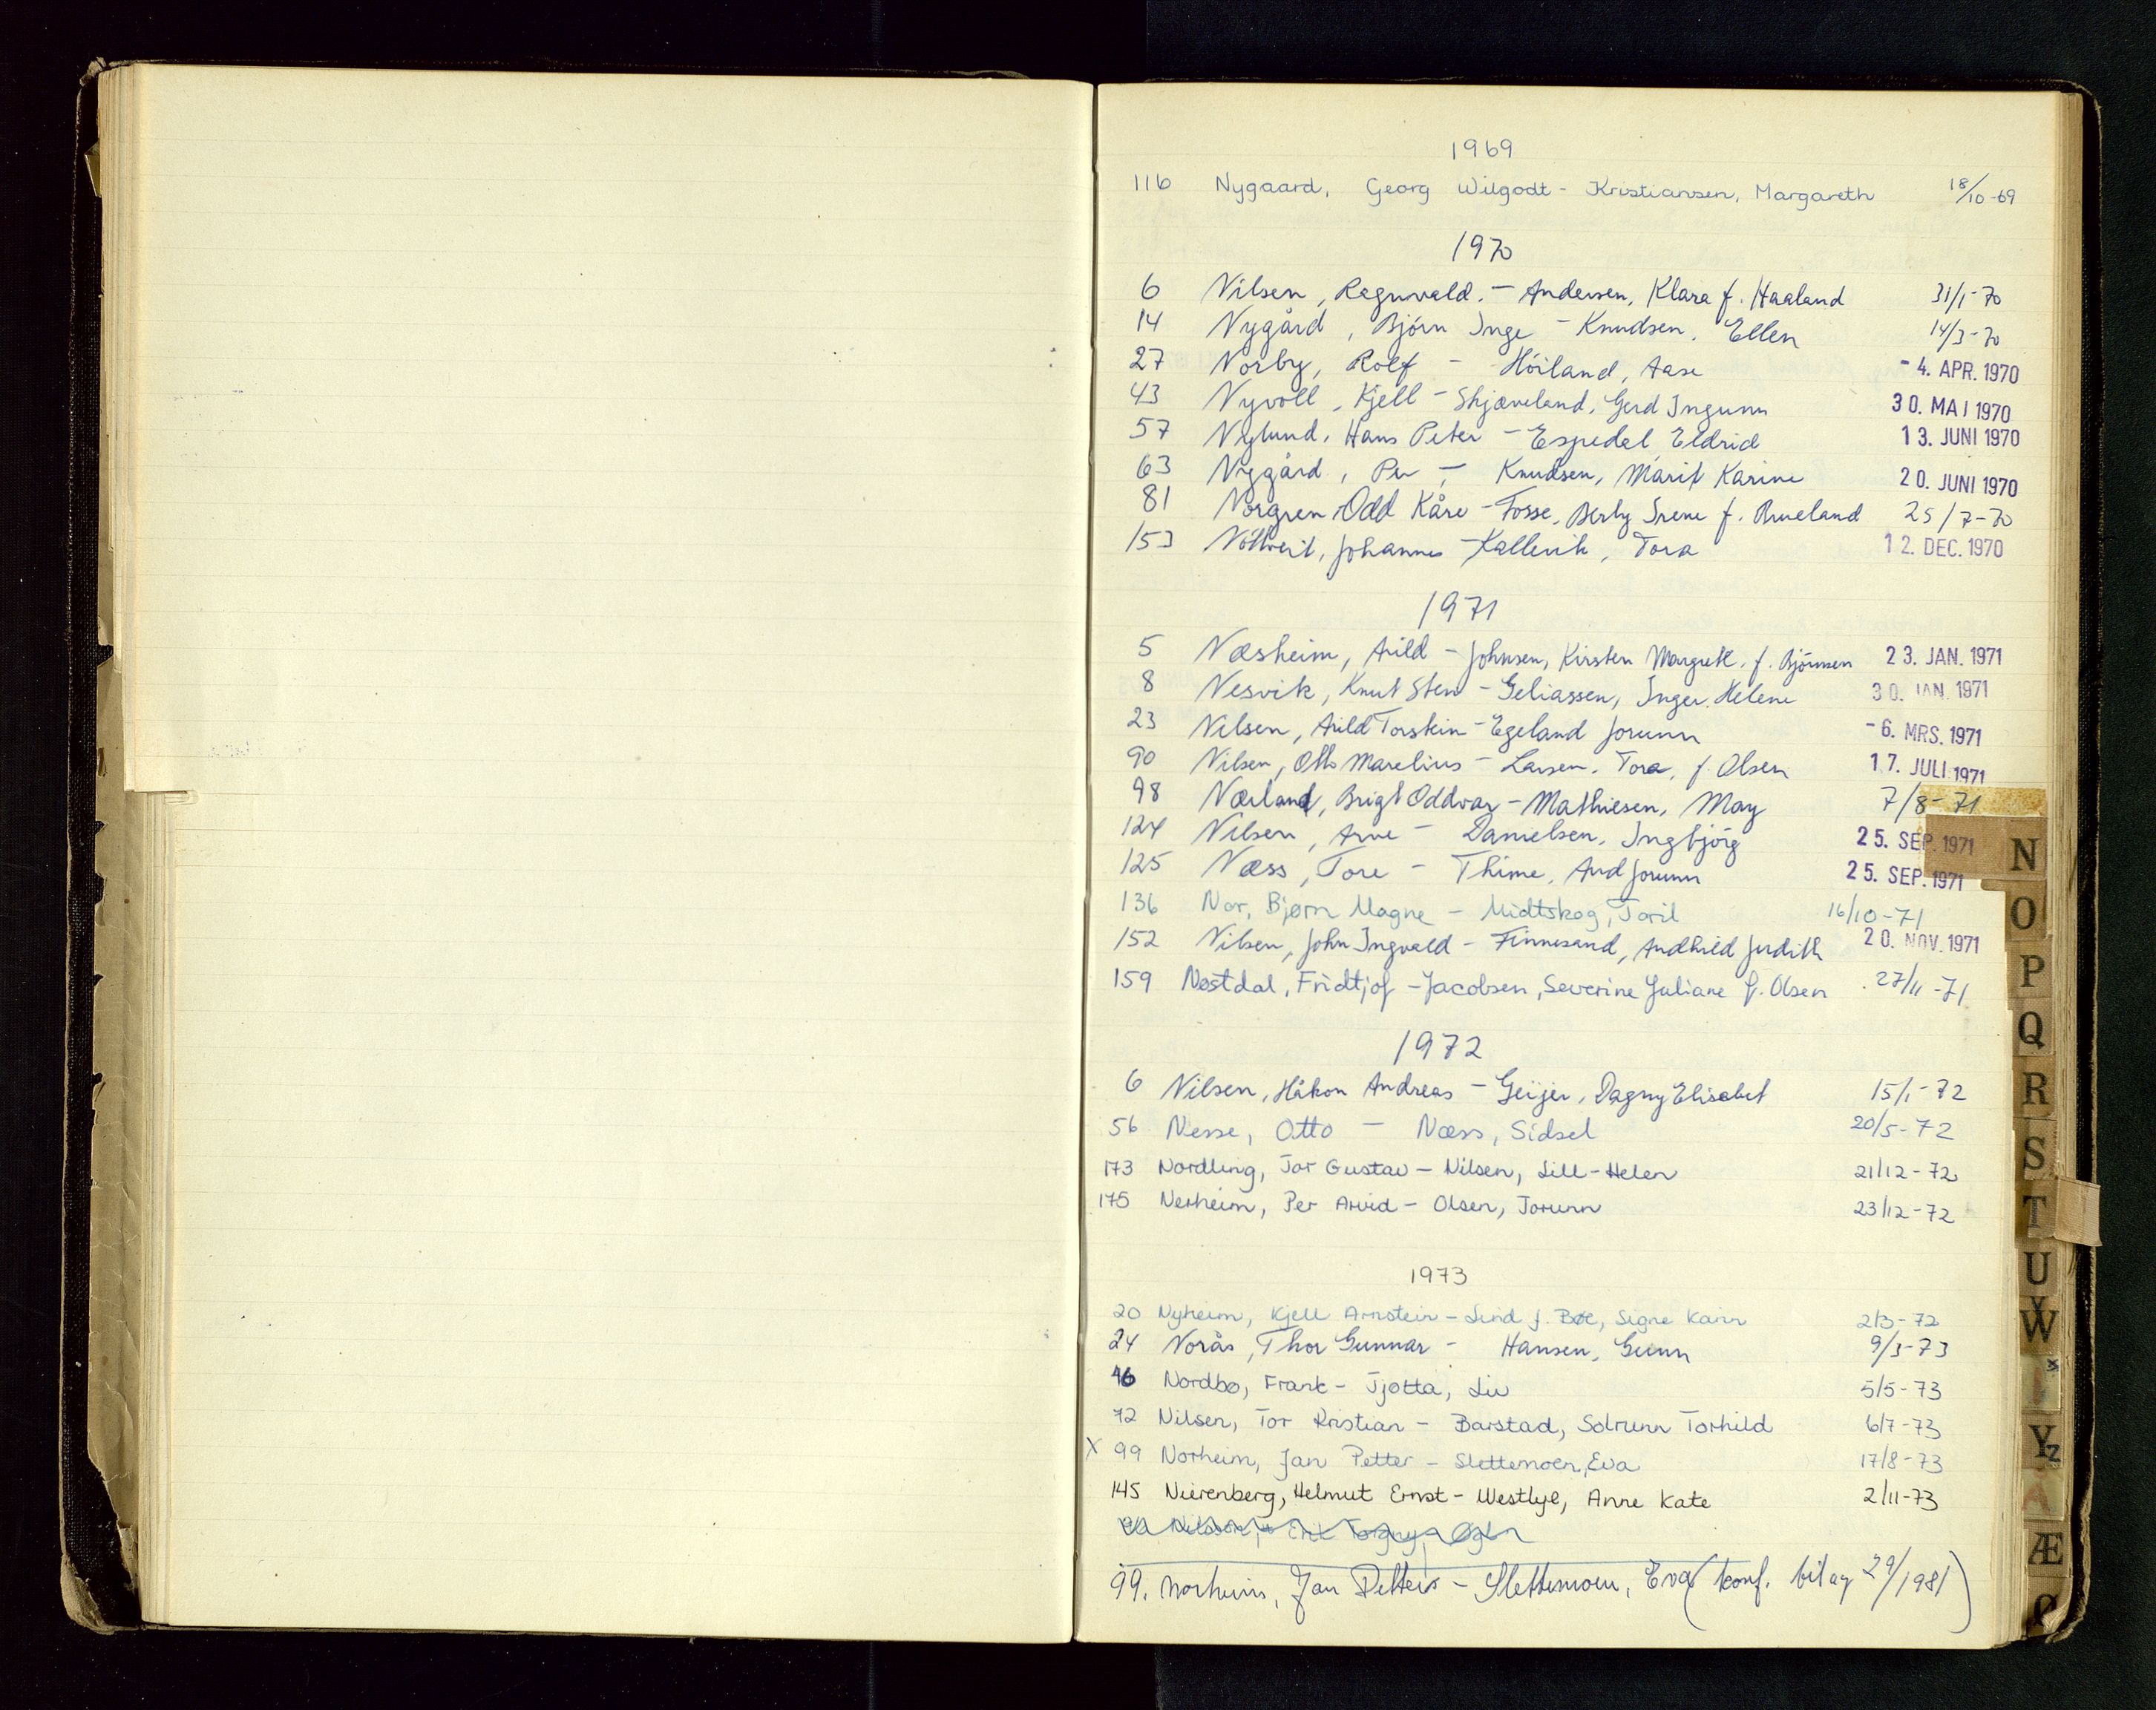 1969
116 Nygaard, Georg Wilgodt - Kristiansen, Margareth 18/10-69
1970
6 Nilsen, Ragnvald. - Andersen, Klara f. Haaland 31/1-70
14 Nygård, Bjórn Inge - Knudsen, Ellen 14/3-70
27 Norby, Rolf - Hóiland, Aase - 4. APR. 1970
43 Nyvoll, Kjell - Skjæveland, Gerd Ingunn 30. MAI 1970
57 Nylund, Hans Peter - Espedal, Eldrid 13. JUNI 1970
63 Nygård, Per - Knudsen, Marit Karine 20. JUNI 1970
81 Norgren, Odd Kåre - Fosse, Berly Irene f. Brueland 25/7-70
153 Nótveit, Johannes - Kallevik, Tora 12. DEC. 1970
1971
5 Næsheim, Arild - Johnsen, Kirsten Margreth. f. Bjórnsen 23. JAN. 1971
8 Nesvik, Knut Sten - Geliassen, Inger Helene 30. JAN. 1971
23 Nilsen, Arild Torstein - Egeland Jorunn - 6. MRS. 1971
90 Nilsen, Otto Marelius - Larsen, Tora, f. Olsen 17. JULI 1971
98 Nærland, Brigt Oddvar - Mathiesen, May 7/8-71
124 Nilsen, Arne - Danielsen, Ingbjórg 25. SEP. 1971
125 Næss, Tore - Thime, Aud Jorunn 25. SEP. 1971
136 Nor, Bjørn Magne - Midtskog, Toril 16/10-71
152 Nilsen, John Ingvald - Finnesand, Audhild Judith 20. NOV. 1971
159 Nøstdal, Fridtjof - Jacobsen, Severine Juliane f. Olsen 27/11-71
1972
6 Nilsen, Håkon Andreas - Geijer, Dagny Elisabet 15/1-72
56 Nesse, Otto - Næss, Sidsel 20/5-72
173 Nordling, Tor Gustav - Nilsen, Lill-Helen 21/12-72
175 Nerheim, Per Arvid - Olsen, Jorunn 23/12-72
1973
20 Nyheim, Kjell Arnstein - Lind f. Bøe, Signe Karin 2/3-72
24 Norås, Thor Gunnar - Hansen, Gunn 9/3-73
46 Nordbø, Frank - Tjøtta, Liv 5/5-73
72 Nilsen, Tor Kristian - Barstad, Solrunn Torhild 6/7-73
X 99 Norheim, Jan Petter - Slettemoen, Eva 17/8-73
145 Nierenberg, Helmut Ernst - Westlye, Anne Kate 2/11-73
99. Norheim, Jan Petter - Slettemoen, Eva (konf. bilag 29/1981)
N
O
P
Q
R
S
T
U
V
W
X
Y
Z
Å
Æ
Ø